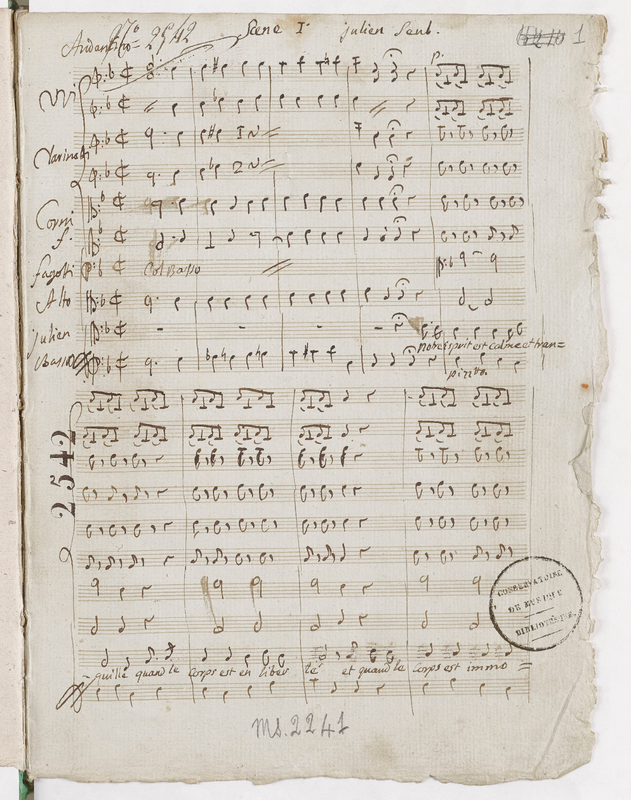 Andantino N.º 2542 Scene I.e julien seul. 1
VVi
p.
Clarinetti
Corni
f.
fagotti Col Basso
Alto
julien
notre esprit est calme et tran=
Basso
pizzto.
2542
CONSERVATOIRE
DE MUSIQUE
BIBLIOTHÈQUE
- quille quand le corps est en liber té et quand le corps est immo =
Ms. 2241